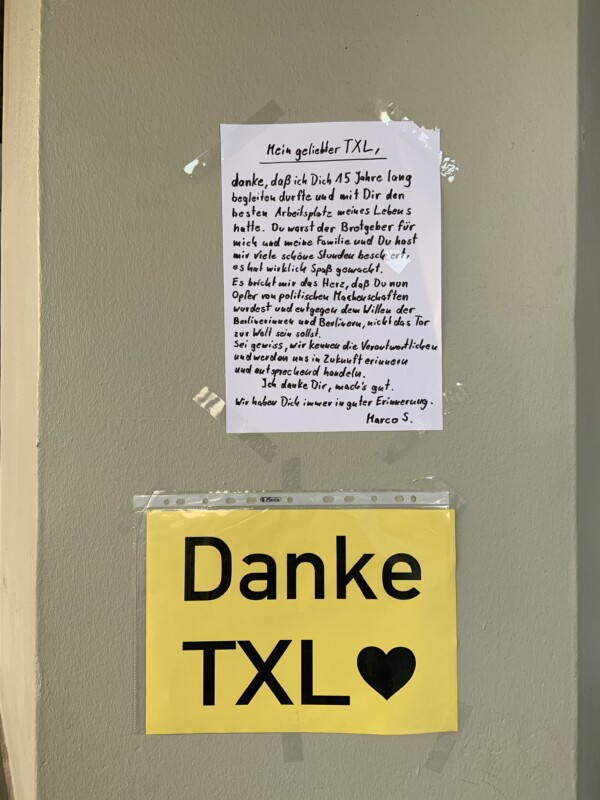 Mein geliebter TXL,
danke, daß ich Dich 15 Jahre lang
begleiten durfte und mit Dir den
besten Arbeitsplatz meines Lebens
hatte. Du warst der Brotgeber für
mich und meine Familie und Du hast
mir viele schöne Stunden beschert,
es hat wirklich Spaß gemacht.
Es bricht mir das Herz, daß Du nun
Opfer von politischen Machenschaften
wurdest und entgegen dem Willen der
Berlinerinnen und Berlinern, nicht das Tor
zur Welt sein sollst.
Sei gewiss, wir kennen die Verantwortlichen
und werden uns in Zukunft erinnern
und entsprechend handeln.
Ich danke Dir, mach's gut.
Wir haben Dich immer in guter Erinnerung.
Marco S.
Danke
TXL